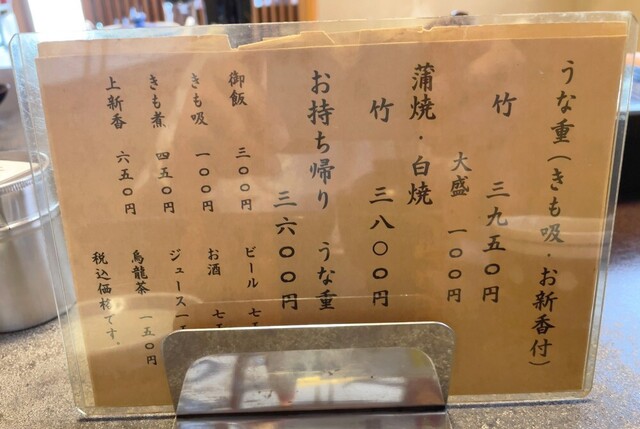 うな重(きも吸・お新香付)
竹 三九五〇円
大盛 一〇〇円
蒲焼・白焼
竹 三八〇〇円
お持ち帰り うな重
三六〇〇円
御飯 三〇〇円
きも吸 一〇〇円
きも煮 四五〇円
上新香 六五〇円
ビール 七
お酒 七
ジュース 一
烏龍茶 一五〇円
税込価格です。